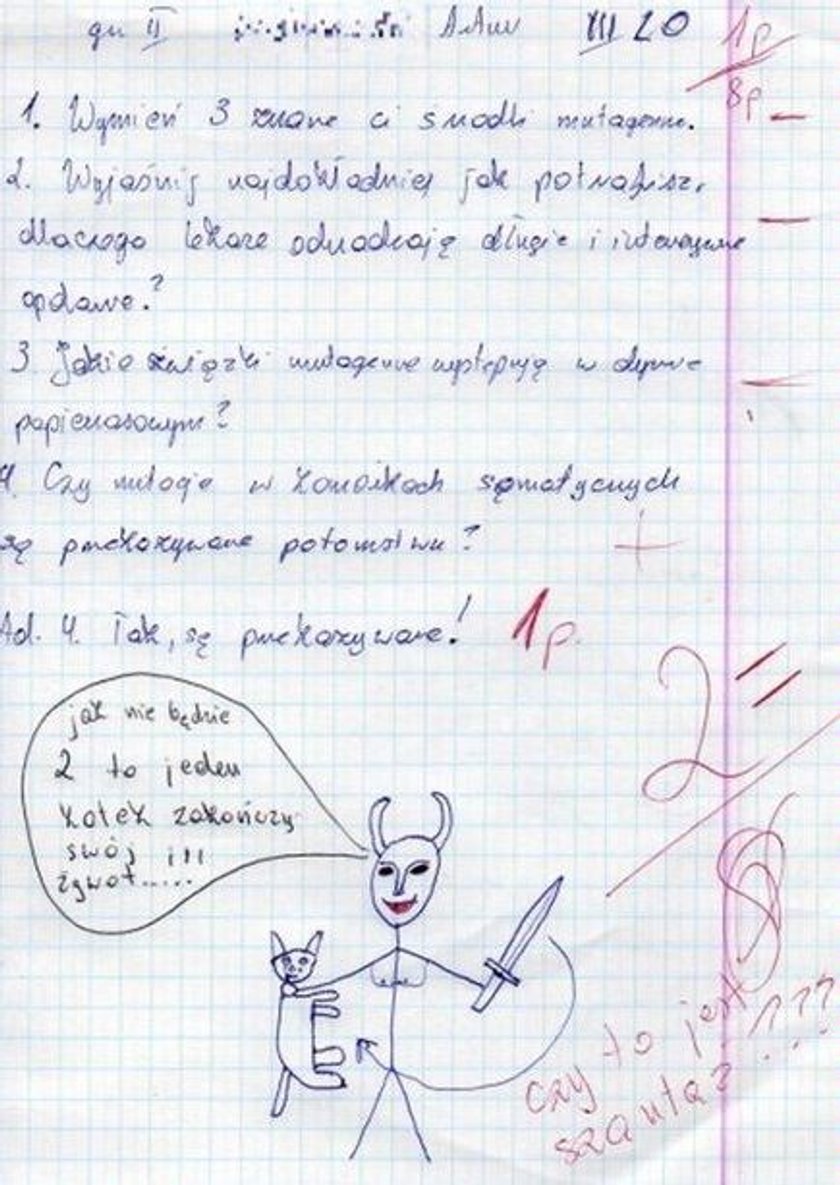 gr. II
III LO 1p
8p
1. Wymień 3 znane ci środki mutagenne.
2. Wyjaśnij najdokładniej jak potrafisz,
dlaczego lekarze odradzają długie i intensywne
opalanie.?
3. Jakie związki mutagenne występują w dymie
papierosowym?
4. Czy mutacje w komórkach somatycznych
są przekazywane potomstwu?
Ad. 4. Tak, są przekazywane! 1p.
2=
jak nie będzie
2 to jeden
kotek zakończy
swój
żywot.....
czy to jest
szantaż ???